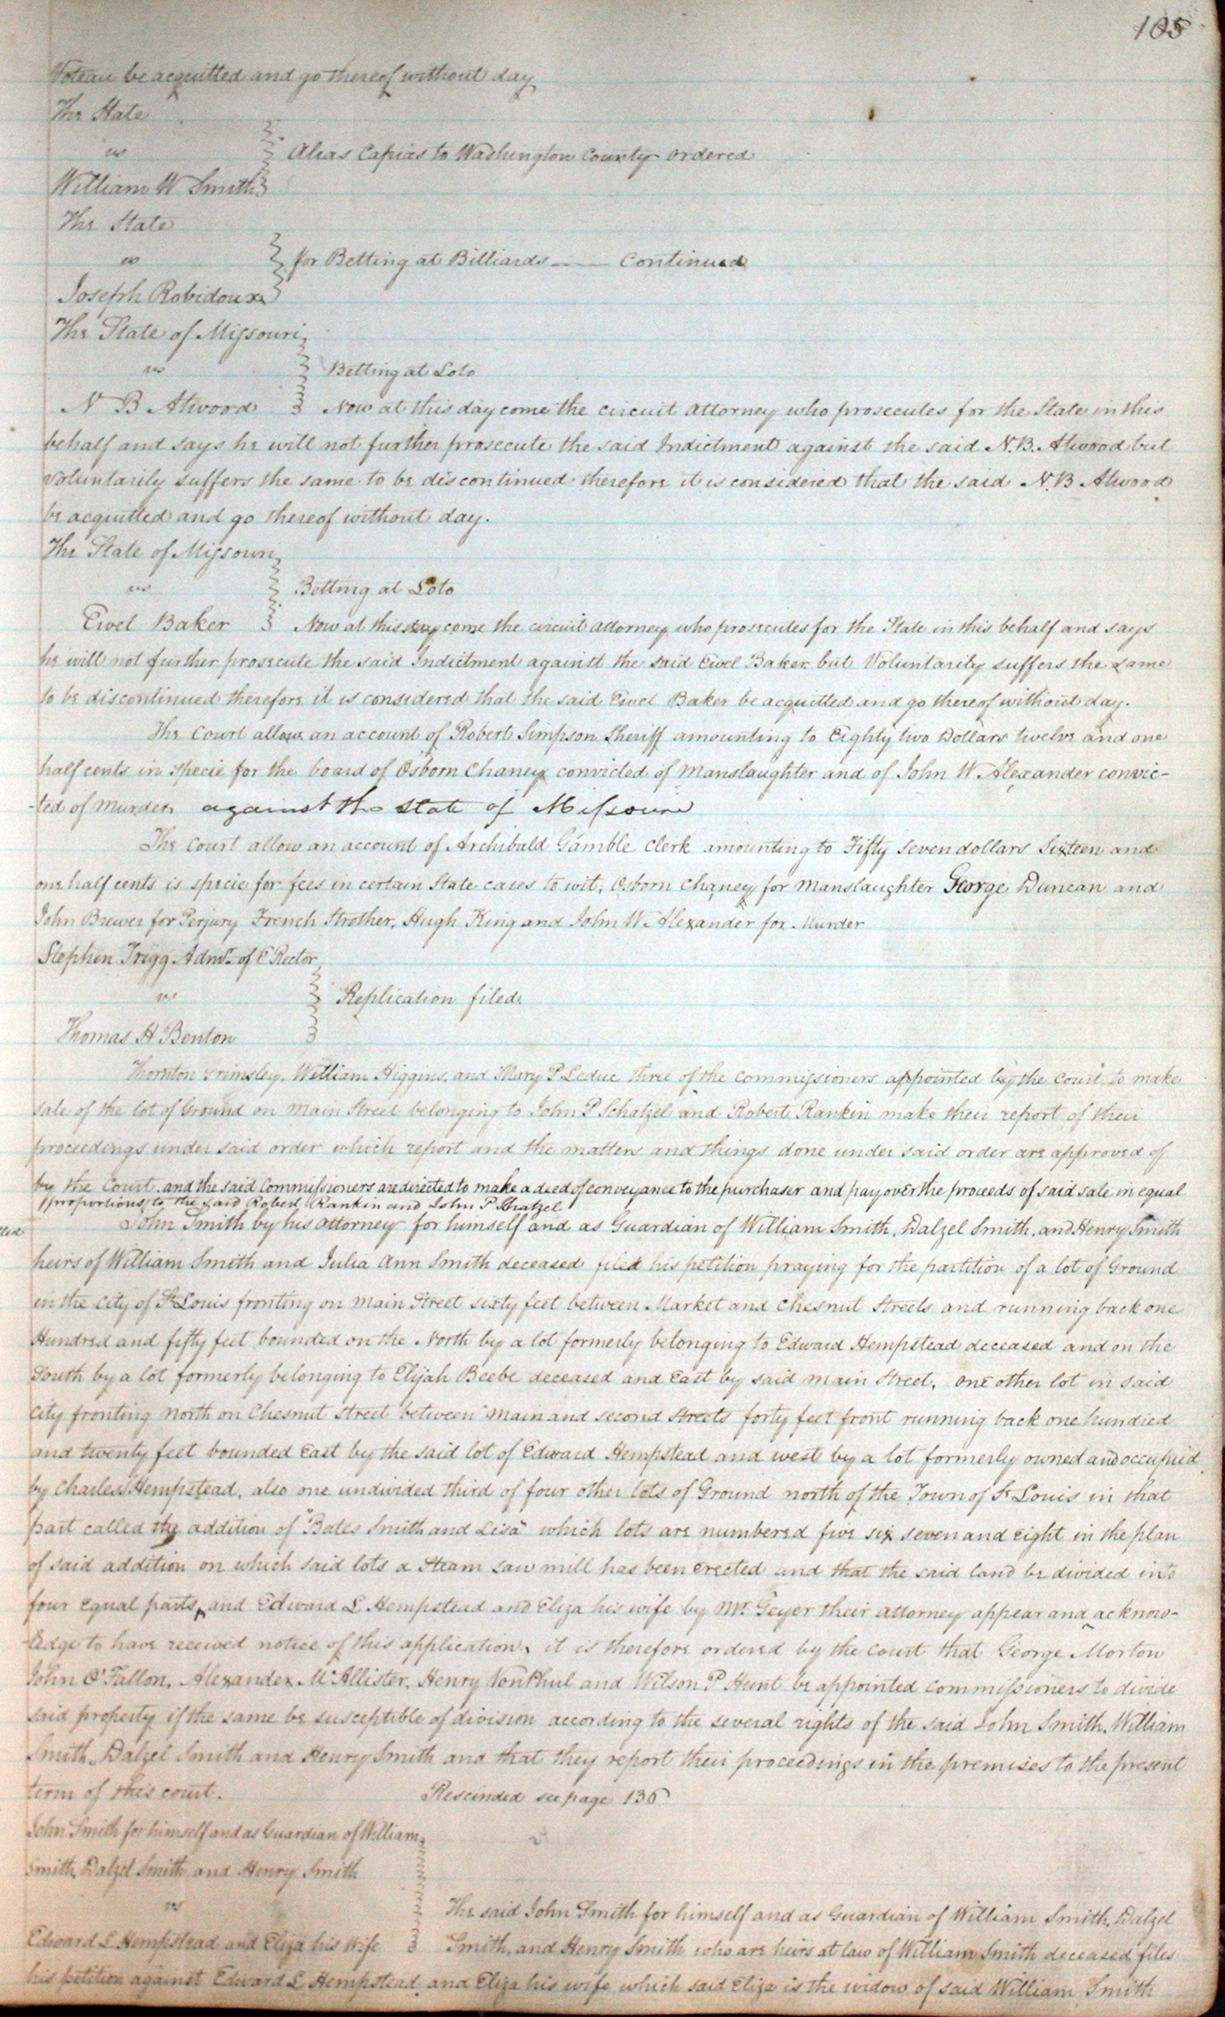 105
Voteau be acquitted and go thereof without day
The State
vs
Alias Capias to Washington County ordered
William W Smith
The State
vs
for Betting at Billiards —— Continued
Joseph Robidoux
The State of Missouri
vs
Betting at Loto
N B Atwood Now at this day come the circuit attorney who prosecutes for the State in this
behalf and says he will not further prosecute the said Indictment against the said N. B. Atwood but
Voluntarily suffers the same to be discontinued therefore it is considered that the said N. B Atwood
be acquitted and go thereof without day.
The State of Missouri
vs
Betting at Loto
Eivel Baker Now at this day come the circuit attorney who prosecutes for the State in this behalf and says
he will not further prosecute the said Indictment against the said Eivel Baker but Voluntarily suffers the same
to be discontinued therefore it is considered that the said Eivel Baker be acquitted and go thereof without day.
The Court allow an account of Robert Simpson Sheriff amounting to Eighty two Dollars twelve and one
half cents in specie for the board of Osborn Chaney convicted of Manslaughter and of John W Alexander convic-
-ted of Murder, against the state of Missouri
The Court allow an account of Archibald Gamble Clerk amounting to Fifty Seven dollars Sixteen and
one half cents is specie for fees in certain State cases to wit, Osborn Chaney for Manslaughter George Duncan and
John Brewer for Perjury French Strother, Hugh King and John W Alexander for Murder
Stephen Trigg Admr. of E Rector
vs
Replication filed.
Thomas H Benton
Thornton Grimsley, William Higgins, and Mary P Leduc three of the commissioners appointed by the court, to make
sale of the lot of Ground on main Street belonging to John P Schatzel and Robert Rankin make their report of their
proceedings under said order which report and the matters and things done under said order are approved of
by the Court. and the said Commissioners are directed to make a deed of conveyance to the purchaser and pay over the proceeds of said sale in equal
proportions to the said Robert Rankin and John P Shatzel
John Smith by his attorney for himself and as Guardian of William Smith, Dalzel Smith, and Henry Smith
heirs of William Smith and Julia Ann Smith deceased filed his petition praying for the partition of a lot of Ground
in the City of St Louis fronting on main Street sixty feet between Market and Chesnut Streets and running back one
Hundred and fifty feet bounded on the North by a lot formerly belonging to Edward Hempstead deceased and on the
South by a lot formerly belonging to Elijah Beebe deceased and East by said main Street, one other lot in said
City fronting north on Chesnut Street between main and second Streets forty feet front running back one hundred
and twenty feet bounded East by the said lot of Edward Hempstead and west by a lot formerly owned and occupied
by Charles Hempstead, also one undivided third of four other lots of Ground north of the Town of St Louis in that
part called the addition of "Bates Smith and Lisa" which lots are numbered five six seven and eight in the plan
of said addition on which said lots a steam saw mill has been erected and that the said land be divided into
four equal parts, and Edward L Hempstead and Eliza his wife by Mr Geyer their attorney appear and acknow-
-ledge to have received notice of this application, it is therefore ordered by the court that George Morton
John O'Fallon, Alexander McAllister, Henry VonPhul and Wilson P Hunt be appointed commissioners to divide
said property if the same be susceptible of division according to the several rights of the said John Smith, William
Smith Dalzel Smith and Henry Smith and that they report their proceedings in the premises to the present
term of this court. Rescinded see page 136
John Smith for himself and as Guardian of William
Smith Dalzel Smith and Henry Smith
vs
The said John Smith for himself and as Guardian of William Smith, Dalzel
Edward L Hempstead and Eliza his Wife Smith, and Henry Smith who are heirs at law of William Smith deceased files
his petition against Edward L Hempstead and Eliza his wife which said Eliza is the widow of said William Smith